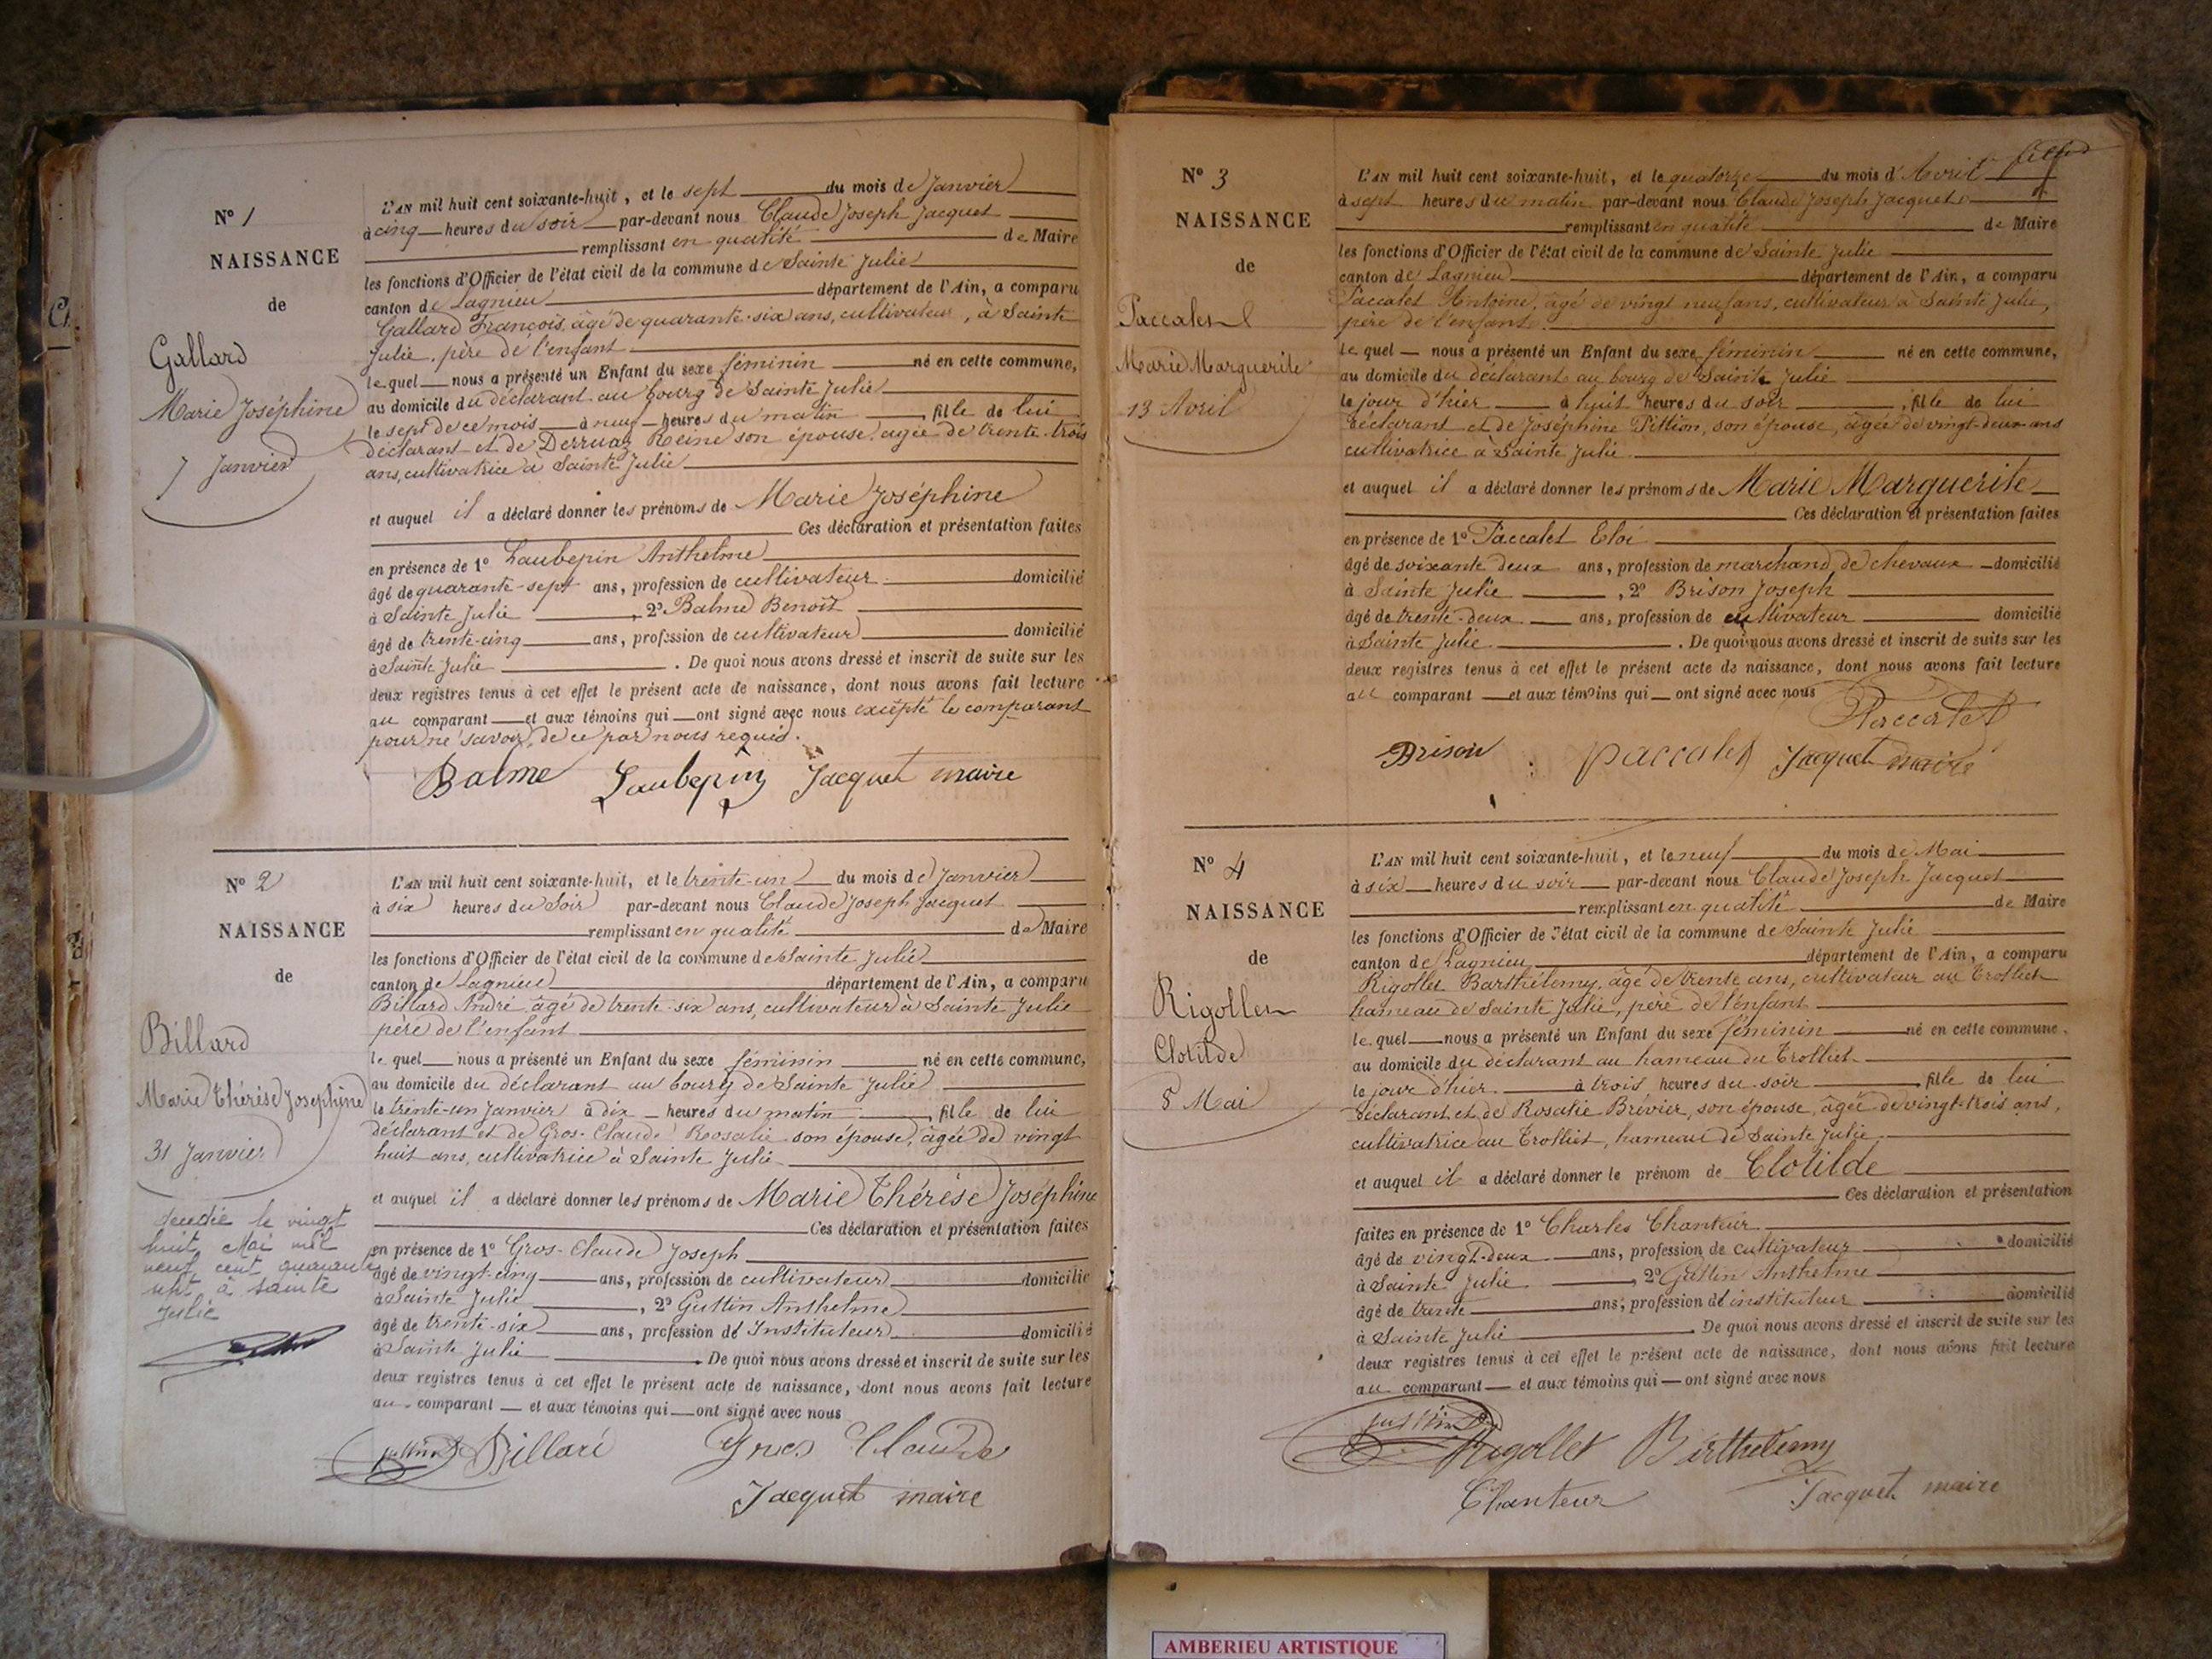 Nº 1
NAISSANCE
de
Gallard
Marie Joséphine
7 Janvier
L'AN mil huit cent soixante-huit, et le sept du mois de Janvier
à cinq heures du soir par-devant nous Claude Joseph Jacquet
remplissant en qualité de Maire
les fonctions d'Officier de l'état civil de la commune de Sainte Julie
canton de Lagnieu département de l'Ain, a comparu
Gallard François, âgé de quarante-six ans, cultivateur, à Sainte
Julie, père de l'enfant
lequel nous a présenté un Enfant du sexe féminin né en cette commune,
au domicile du déclarant au bourg de Sainte Julie
le sept de ce mois à neuf heures du matin, fille de lui
déclarant et de Derruaz Reine son épouse, agée de trente-trois
ans, cultivatrice à Sainte Julie
et auquel il a déclaré donner les prénoms de Marie Joséphine
Ces déclaration et présentation faites
en présence de 1º Laubepin Anthelme
âgé de quarante-sept ans, profession de cultivateur domicilié
à Sainte Julie, 2º Balme Benoît
âgé de trente-cinq ans, profession de cultivateur domicilié
à Sainte Julie. De quoi nous avons dressé et inscrit de suite sur les
deux registres tenus à cet effet le présent acte de naissance, dont nous avons fait lecture
au comparant et aux témoins qui ont signé avec nous excepté le comparant
pour ne savoir, de ce par nous requis.
Balme Laubepin Jacquet maire
Nº 2
NAISSANCE
de
Billard
Marie Thérèse Josephine
31 Janvier
décédée le vingt
huit Mai mil
neuf cent quarante
sept à sainte
Julie
L'AN mil huit cent soixante-huit, et le trente-un du mois de Janvier
à six heures du Soir par-devant nous Claude Joseph Jacquet
remplissant en qualité de Maire
les fonctions d'Officier de l'état civil de la commune de Sainte Julie
canton de Lagnieu département de l'Ain, a comparu
Billard André âgé de trente-six ans, cultivateur à Sainte Julie
père de l'enfant
lequel nous a présenté un Enfant du sexe féminin né en cette commune,
au domicile du déclarant au bourg de Sainte Julie
le trente-un Janvier à dix heures du matin, fille de lui
déclarant et de Gros-Claude Rosalie son épouse, âgée de vingt
huit ans, cultivatrice à Sainte Julie
et auquel il a déclaré donner les prénoms de Marie Thérèse Joséphine
Ces déclaration et présentation faites
en présence de 1º Gros-Claude Joseph
âgé de vingt-cinq ans, profession de cultivateur domicilié
à Sainte Julie, 2º Guttin Anthelme
âgé de trente-six ans, profession de Instituteur domicilié
à Sainte Julie. De quoi nous avons dressé et inscrit de suite sur les
deux registres tenus à cet effet le présent acte de naissance, dont nous avons fait lecture
au comparant et aux témoins qui ont signé avec nous
Billard Gros Claude
Jacquet maire
Nº 3
NAISSANCE
de
Paccalet
Marie Marguerite
13 Avril
L'AN mil huit cent soixante-huit, et le quatorze du mois d'Avril
à sept heures du matin par-devant nous Claude Joseph Jacquet
remplissant en qualité de Maire
les fonctions d'Officier de l'état civil de la commune de Sainte Julie
canton de Lagnieu département de l'Ain, a comparu
Paccalet Antoine, âgé de vingt neuf ans, cultivateur à Sainte Julie,
père de l'enfant.
lequel nous a présenté un Enfant du sexe féminin né en cette commune,
au domicile du déclarant au bourg de Sainte Julie
le jour d'hier à huit heures du soir, fille de lui
déclarant et de Joséphine Pittion, son épouse, âgée de vingt-deux ans
cultivatrice à Sainte Julie
et auquel il a déclaré donner les prénoms de Marie Marguerite
Ces déclaration et présentation faites
en présence de 1º Paccalet Eloi
âgé de soixante deux ans, profession de marchand de chevaux domicilié
à Sainte Julie, 2º Brison Joseph
âgé de trente-deux ans, profession de cultivateur domicilié
à Sainte Julie. De quoi nous avons dressé et inscrit de suite sur les
deux registres tenus à cet effet le présent acte de naissance, dont nous avons fait lecture
au comparant et aux témoins qui ont signé avec nous
Paccalet
Brison paccalet Jacquet maire
Nº 4
NAISSANCE
de
Rigollet
Clotilde
8 Mai
L'AN mil huit cent soixante-huit, et le neuf du mois de Mai
à six heures du soir par-devant nous Claude Joseph Jacquet
remplissant en qualité de Maire
les fonctions d'Officier de l'état civil de la commune de Sainte Julie
canton de Lagnieu département de l'Ain, a comparu
Rigollet Barthélemy, âgé de trente ans, cultivateur au Trolliet
hameau de Sainte Julie, père de l'enfant
lequel nous a présenté un Enfant du sexe féminin né en cette commune,
au domicile du déclarant au hameau du Trolliet
le jour d'hier à trois heures du soir fille de lui
déclarant et de Rosalie Brévier, son épouse, âgée de vingt-trois ans,
cultivatrice au Trolliet, hameau de Sainte Julie
et auquel il a déclaré donner le prénom de Clotilde
Ces déclaration et présentation
faites en présence de 1º Charles Chanteur
âgé de vingt-deux ans, profession de cultivateur domicilié
à Sainte Julie, 2º Guttin Anthelme
âgé de trente ans, profession de instituteur domicilié
à Sainte Julie. De quoi nous avons dressé et inscrit de suite sur les
deux registres tenus à cet effet le présent acte de naissance, dont nous avons fait lecture
au comparant et aux témoins qui ont signé avec nous
Rigollet Barthelemy
Chanteur Jacquet maire
AMBERIEU ARTISTIQUE